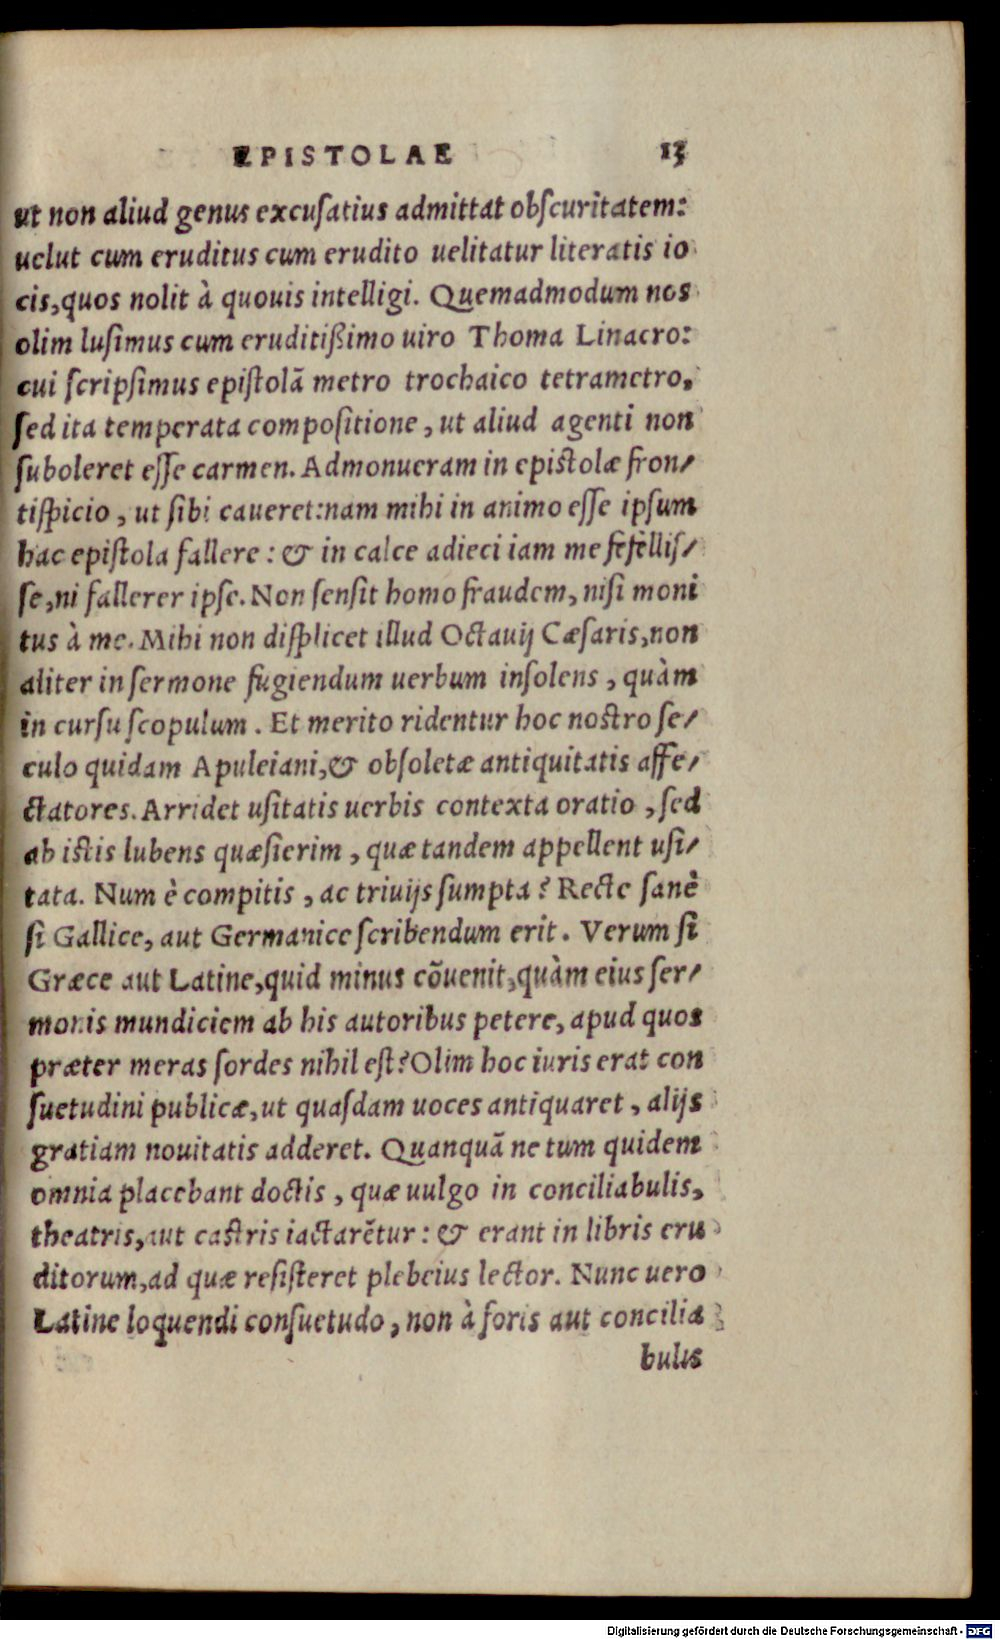 EPISTOLAE 13
ut non aliud genus excuſatius admittat obſcuritatem:
uelut cum eruditus cum erudito uelitatur literatis io
cis,quos nolit à quouis intelligi. Quemadmodum nos
olim luſimus cum eruditißimo uiro Thoma Linacro:
cui ſcripſimus epiſtolā metro trochaico tetrametro,
ſed ita temperata compoſitione, ut aliud agenti non
ſuboleret eſſe carmen. Admonueram in epiſtolæ fron/
tiſpicio, ut ſibi caueret:nam mihi in animo eſſe ipſum
hac epiſtola fallere: & in calce adieci iam me fefelliſ/
ſe,ni fallerer ipſe. Non ſenſit homo fraudem, niſi moni
tus à me. Mihi non diſplicet illud Octauij Cæſaris,non
aliter in ſermone fugiendum uerbum inſolens, quàm
in curſu ſcopulum. Et merito ridentur hoc noſtro ſe/
culo quidam Apuleiani,& obſoletæ antiquitatis affe/
ctatores. Arridet uſitatis uerbis contexta oratio, ſed
ab iſtis lubens quæſierim, quæ tandem appellent uſi/
tata. Num è compitis, ac triuijs ſumpta? Recte ſanè
ſi Gallice, aut Germanice ſcribendum erit. Verum ſi
Græce aut Latine,quid minus cōuenit,quàm eius ſer/
monis mundiciem ab his autoribus petere, apud quos
præter meras ſordes nihil eſt? Olim hoc iuris erat con
ſuetudini publicæ,ut quaſdam uoces antiquaret, alijs
gratiam nouitatis adderet. Quanquā ne tum quidem
omnia placebant doctis, quæ uulgo in conciliabulis,
theatris,aut caſtris iactarētur: & erant in libris eru
ditorum,ad quæ reſiſteret plebeius lector. Nunc uero
Latine loquendi conſuetudo, non à foris aut concilia
bulis
Digitalisierung gefördert durch die Deutsche Forschungsgemeinschaft - DFG